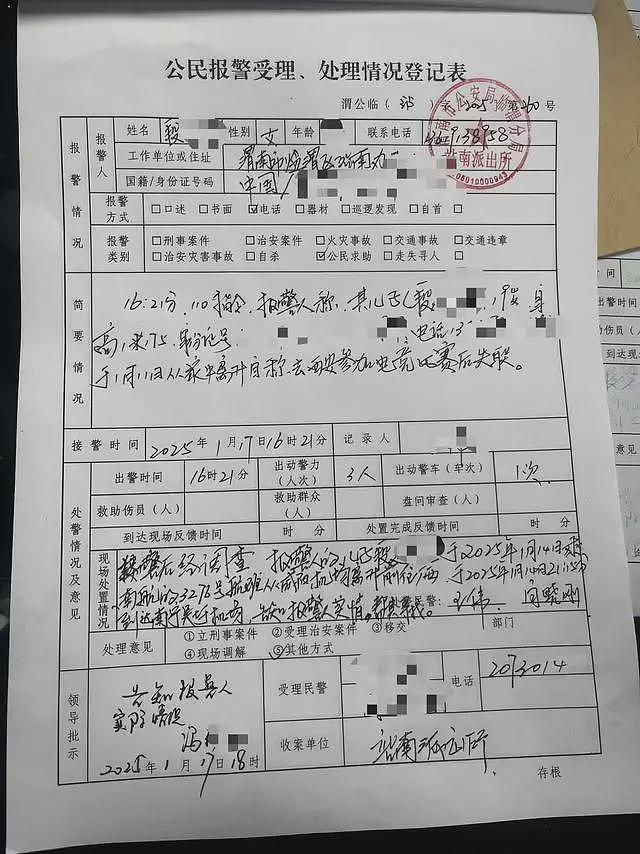 公民报警受理、处理情况登记表
渭公临（站）字2025第 号
报警情况
报警人
姓名 性别 女 年龄 联系电话
工作单位或住址
国籍/身份证号码 中国
站南派出所
报警方式 □口述 □书面 ☑电话 □器材 □巡逻发现 □自首 □
报警类别 □刑事案件 □治安案件 □火灾事故 □交通事故 □交通违章
□治安灾害事故 □自杀 ☑公民求助 □走失寻人 □
简要情况
16:21分，110指令，报警人称，其儿子 19岁，身
高1米75，身份证号 电话13
于1月11日从家中离开自称去西安参加电竞比赛后失联。
接警时间 2025年1月17日16时21分 记录人
处警情况及意见
出警时间 16时21分 出动警力（人次） 3人 出动警车（车次） 1次
救助伤员（人） 救助群众（人） 盘问审查（人）
到达现场反馈时间 时 分 处置完成反馈时间 时 分
现场处置情况
接警后经调查 报警人的儿子 于2025年1月14日
南航 3276号航班从咸阳机场离开前往 于2025年1月14日21时15分
到达南宁吴圩机场，告知报警人实情。 民警：王伟
处理意见 ①立刑事案件 ②受理治安案件 ③移交 部门
④现场调解 ⑤其他方式
领导批示
告知报警人
实际情况
冯
2025年1月17日18时
受理民警 电话 2073014
收案单位 站南派出所
存根